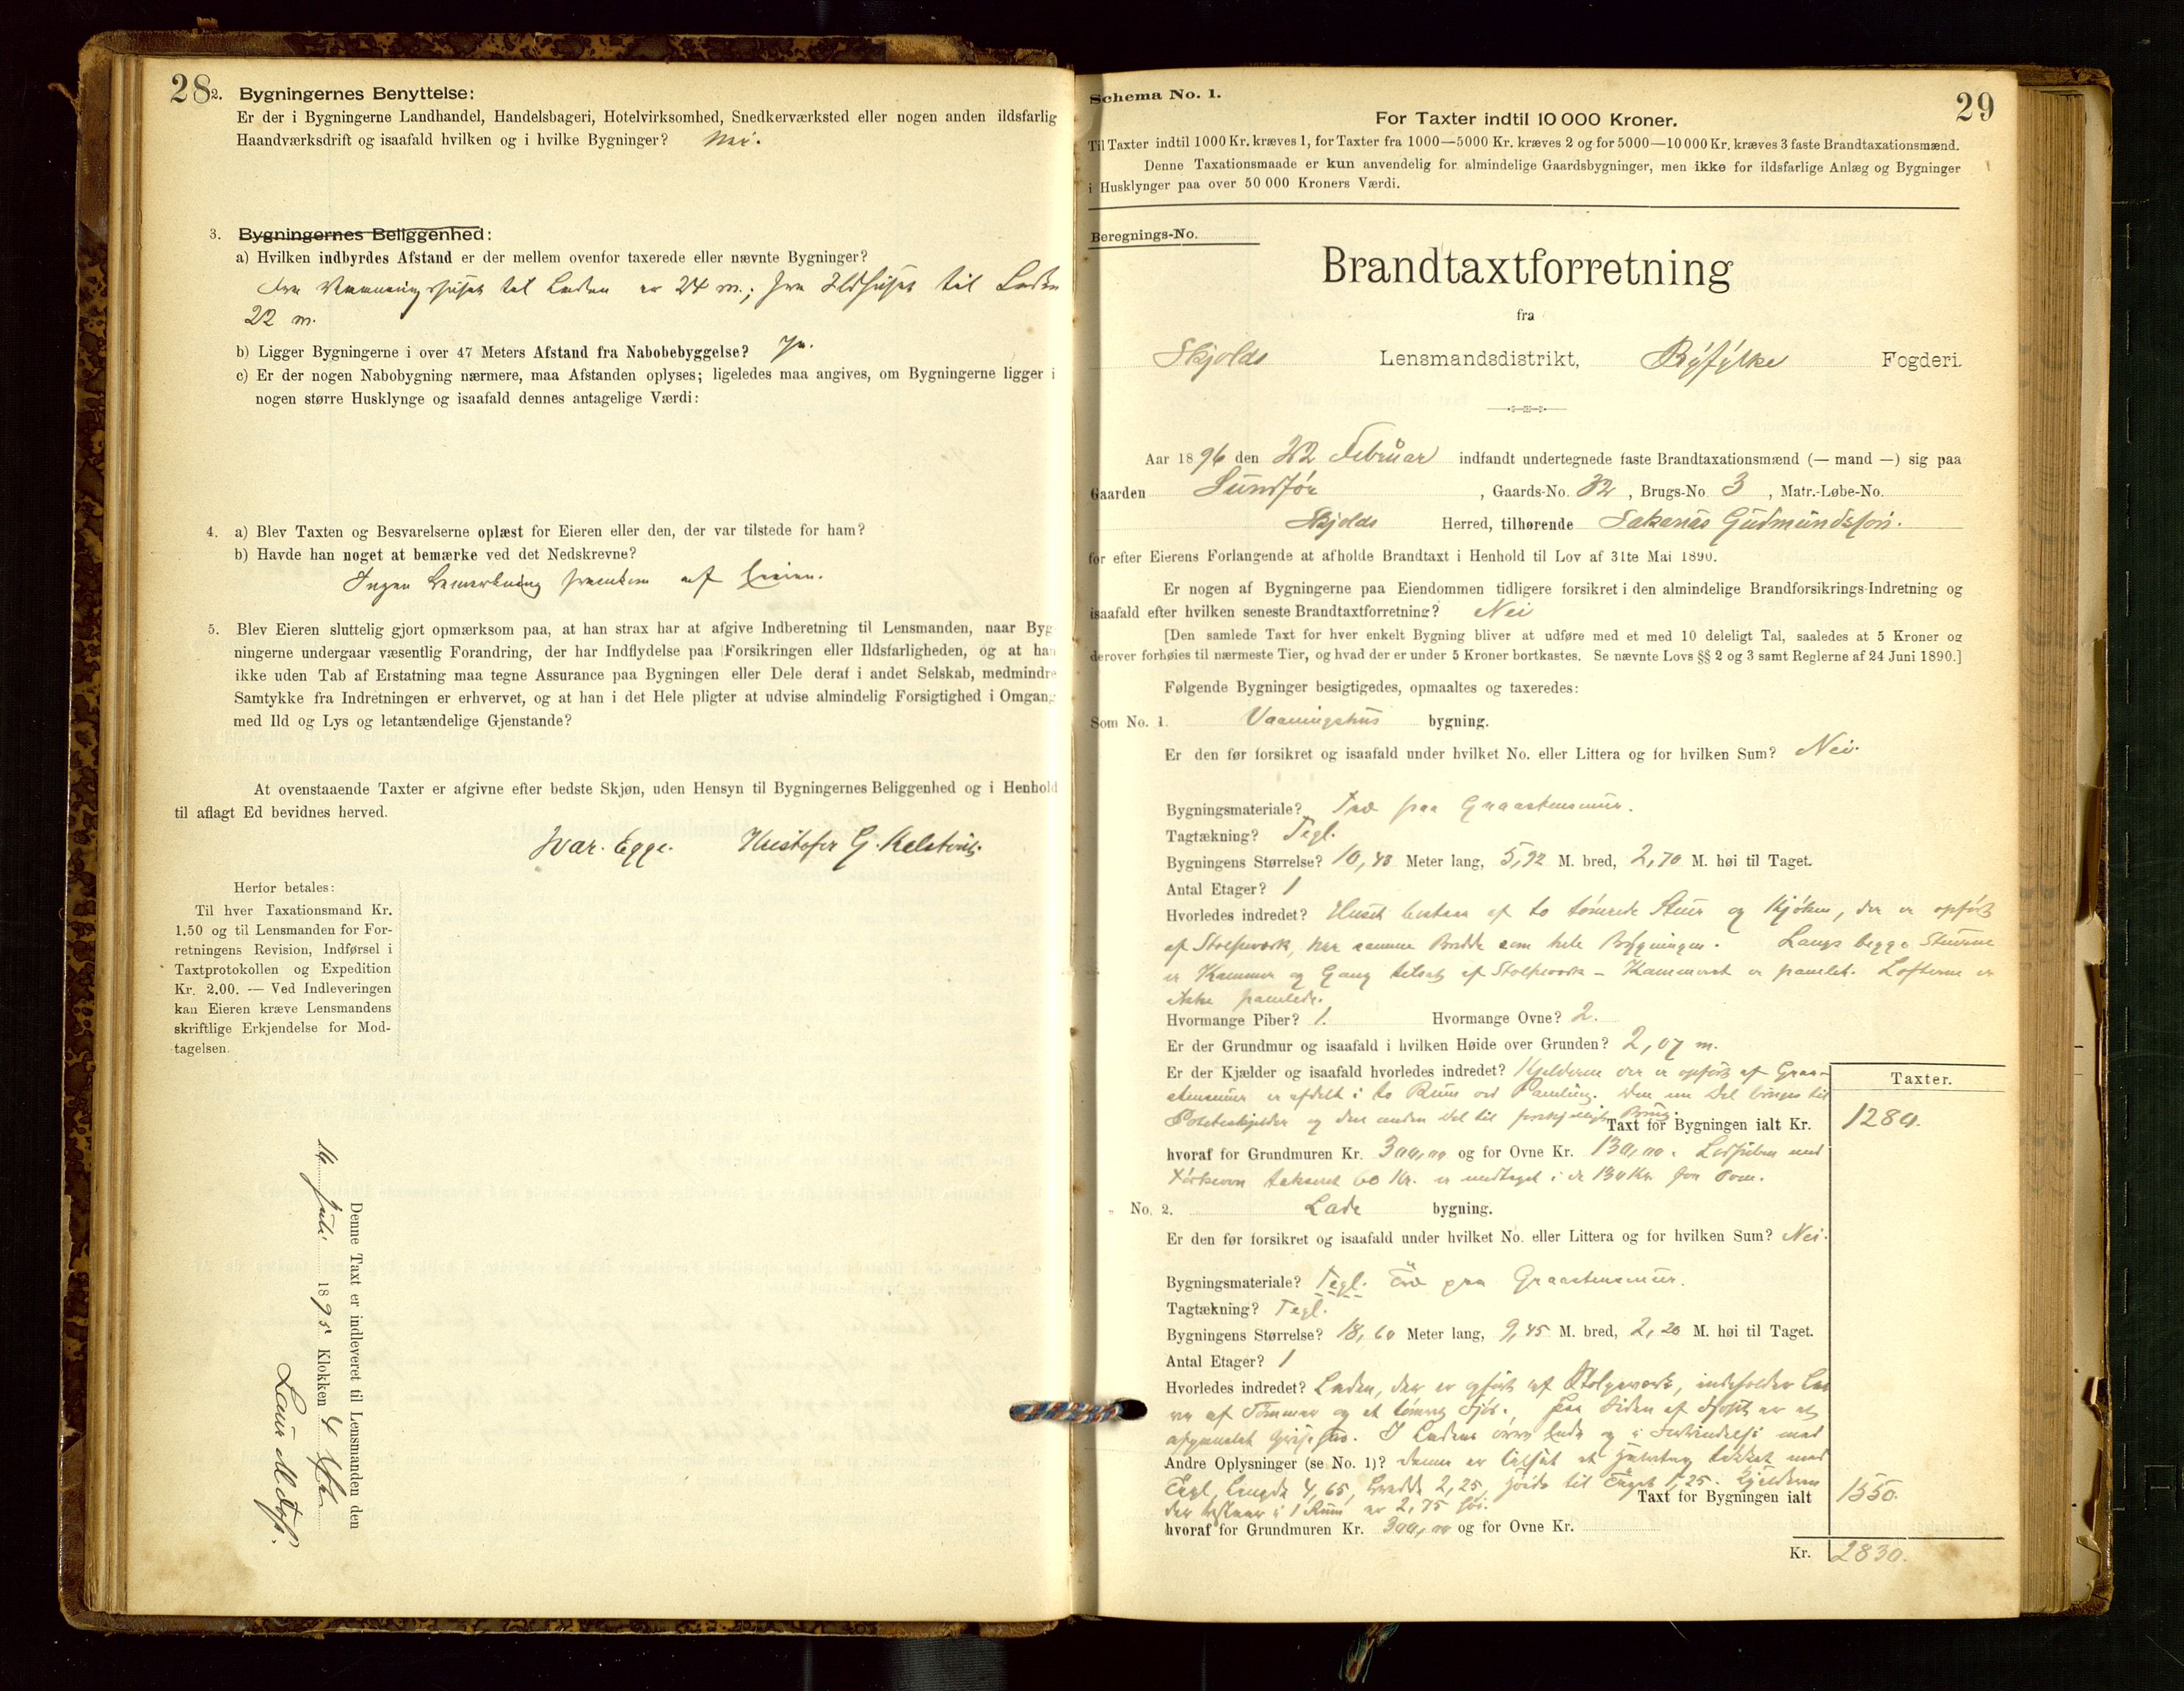 28
2. Bygningernes Benyttelse:
Er der i Bygningerne Landhandel, Handelsbageri, Hotelvirksomhed, Snedkerværksted eller nogen anden ildsfarlig
Haandværksdrift og isaafald hvilken og i hvilke Bygninger? Nei.
3. Bygningernes Beliggenhed:
a) Hvilken indbyrdes Afstand er der mellem ovenfor taxerede eller nævnte Bygninger?
Fra Vaaningshuset til Laden er 24 m.; fra Ildhuset til Laden
22 m.
b) Ligger Bygningerne i over 47 Meters Afstand fra Nabobebyggelse? Ja.
c) Er der nogen Nabobygning nærmere, maa Afstanden oplyses; ligeledes maa angives, om Bygningerne ligger i
nogen større Husklynge og isaafald dennes antagelige Værdi:
4. a) Blev Taxten og Besvarelserne oplæst for Eieren eller den, der var tilstede for ham?
b) Havde han noget at bemærke ved det Nedskrevne?
Ingen Bemærkning fremkom af Eieren.
5. Blev Eieren sluttelig gjort opmærksom paa, at han strax har at afgive Indberetning til Lensmanden, naar Byg-
ningerne undergaar væsentlig Forandring, der har Indflydelse paa Forsikringen eller Ildsfarligheden, og at han
ikke uden Tab af Erstatning maa tegne Assurance paa Bygningen eller Dele deraf i andet Selskab, medmindre
Samtykke fra Indretningen er erhvervet, og at han i det Hele pligter at udvise almindelig Forsigtighed i Omgang
med Ild og Lys og letantændelige Gjenstande?
At ovenstaaende Taxter er afgivne efter bedste Skjøn, uden Hensyn til Bygningernes Beliggenhed og i Henhold
til aflagt Ed bevidnes herved.
Ivar. Egge. G.
Herfor betales:
Til hver Taxationsmand Kr.
1.50 og til Lensmanden for For-
retningens Revision, Indførsel i
Taxtprotokollen og Expedition
Kr. 2.00. — Ved Indleveringen
kan Eieren kræve Lensmandens
skriftlige Erkjendelse for Mod-
tagelsen.
Denne Taxt er indleveret til Lensmanden den
Juli 1895 Klokken 4
29
Schema No. 1.
For Taxter indtil 10 000 Kroner.
Til Taxter indtil 1000 Kr. kræves 1, for Taxter fra 1000—5000 Kr. kræves 2 og for 5000—10 000 Kr. kræves 3 faste Brandtaxationsmænd.
Denne Taxationsmaade er kun anvendelig for almindelige Gaardsbygninger, men ikke for ildsfarlige Anlæg og Bygninger
i Husklynger paa over 50 000 Kroners Værdi.
Beregnings-No.
Brandtaxtforretning
fra
Skjolds Lensmandsdistrikt, Ryfylke Fogderi.
Aar 1896 den 22 Februar indfandt undertegnede faste Brandtaxationsmænd (— mand —) sig paa
Gaarden Sundfør, Gaards-No. 32, Brugs-No. 3, Matr.-Løbe-No.
Skjolds Herred, tilhørende Sakarias Gudmundssøn.
for efter Eierens Forlangende at afholde Brandtaxt i Henhold til Lov af 31te Mai 1890.
Er nogen af Bygningerne paa Eiendommen tidligere forsikret i den almindelige Brandforsikrings-Indretning og
isaafald efter hvilken seneste Brandtaxtforretning? Nei
[Den samlede Taxt for hver enkelt Bygning bliver at udføre med et med 10 deleligt Tal, saaledes at 5 Kroner og
derover forhøies til nærmeste Tier, og hvad der er under 5 Kroner bortkastes. Se nævnte Lovs §§ 2 og 3 samt Reglerne af 24 Juni 1890.]
Følgende Bygninger besigtigedes, opmaaltes og taxeredes:
Som No. 1. Vaaningshus bygning.
Er den før forsikret og isaafald under hvilket No. eller Littera og for hvilken Sum? Nei.
Bygningsmateriale? Træ paa Graastensmur.
Tagtækning? Tegl.
Bygningens Størrelse? 10,43 Meter lang, 5,92 M. bred, 2,70 M. høi til Taget.
Antal Etager? 1
Hvorledes indredet? Huset bestaar af to tømrede Stuer og Kjøken, der er opført
af Stolpeværk, har samme Bredde som hele Bygningen. Langs begge Stuerne
er Kammer og Gang tilsat af Stolpeværk - Kammeret er panelet. Lofterne er
ikke panelede.
Hvormange Piber? 1. Hvormange Ovne? 2.
Er der Grundmur og isaafald i hvilken Høide over Grunden? 2,07 m.
Er der Kjælder og isaafald hvorledes indredet? Kjelderen der er opført af Graa-
stensmur er afdelt i to Rum ved Paneling. Den ene Del bruges til
Poteteskjelder og den anden Del til forskjelligt Brug.
Taxter.
Taxt for Bygningen ialt Kr. 1280.
hvoraf for Grundmuren Kr. 300,00 og for Ovne Kr. 130,00. med
takseret 60 Kr. er medtaget i de 130 Kr for Ovn.
No. 2. Lade bygning.
Er den før forsikret og isaafald under hvilket No. eller Littera og for hvilken Sum? Nei.
Bygningsmateriale? Tegl. Træ paa Graastensmur.
Tagtækning? Tegl.
Bygningens Størrelse? 18,60 Meter lang, 9,45 M. bred, 2,20 M. høi til Taget.
Antal Etager? 1
Hvorledes indredet? Laden, der er opført af Stolpeværk, indeholder
af Tømmer og et tømret Fjøs. Paa Siden af Fjøset er et
afpanelet Grisehus. I Ladens øvre Ende og i Forbindelse med
Andre Oplysninger (se No. 1)? denne er tilsat et tækket med
Tegl, Længde 4,65, Bredde 2,25, Høide til Taget 1,25. Kjelderen
der bestaar i 1 Rum er 2,75 høi.
Taxt for Bygningen ialt 1550.
hvoraf for Grundmuren Kr. 300,00 og for Ovne Kr.
Kr. 2830.